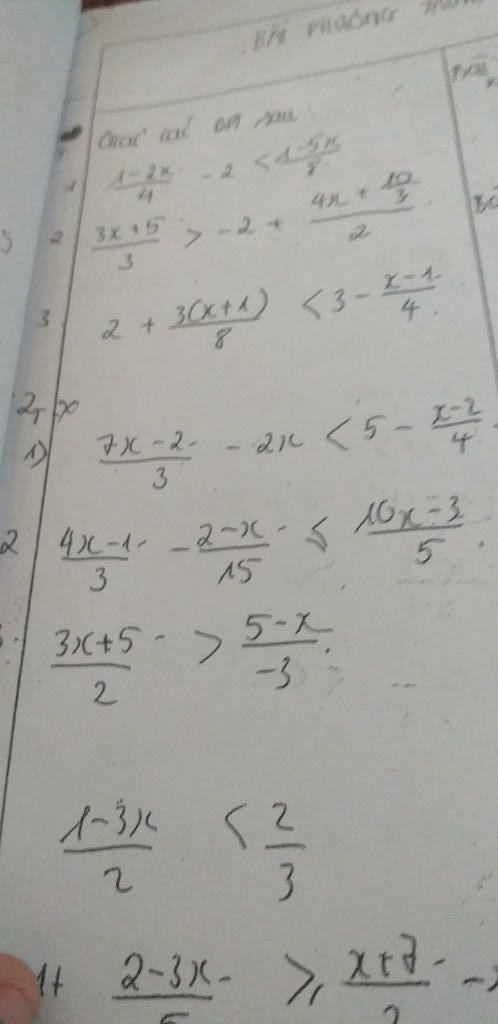 BẤT PHƯƠNG TRÌNH
Giải các BPT sau:
1 (1-2x)/4 - 2 < (1-5x)/8
2 (3x+5)/3 > -2 + (4x + 10/3)/2
3 2 + 3(x+1)/8 < 3 - (x-1)/4
1) (7x-2)/3 - 2x < 5 - (x-2)/4
2 (4x-1)/3 - (2-x)/15 ≤ (10x-3)/5
(3x+5)/2 > (5-x)/-3
(1-3x)/2 < 2/3
1+ (2-3x)/5 ≥ (x+7)/2 -